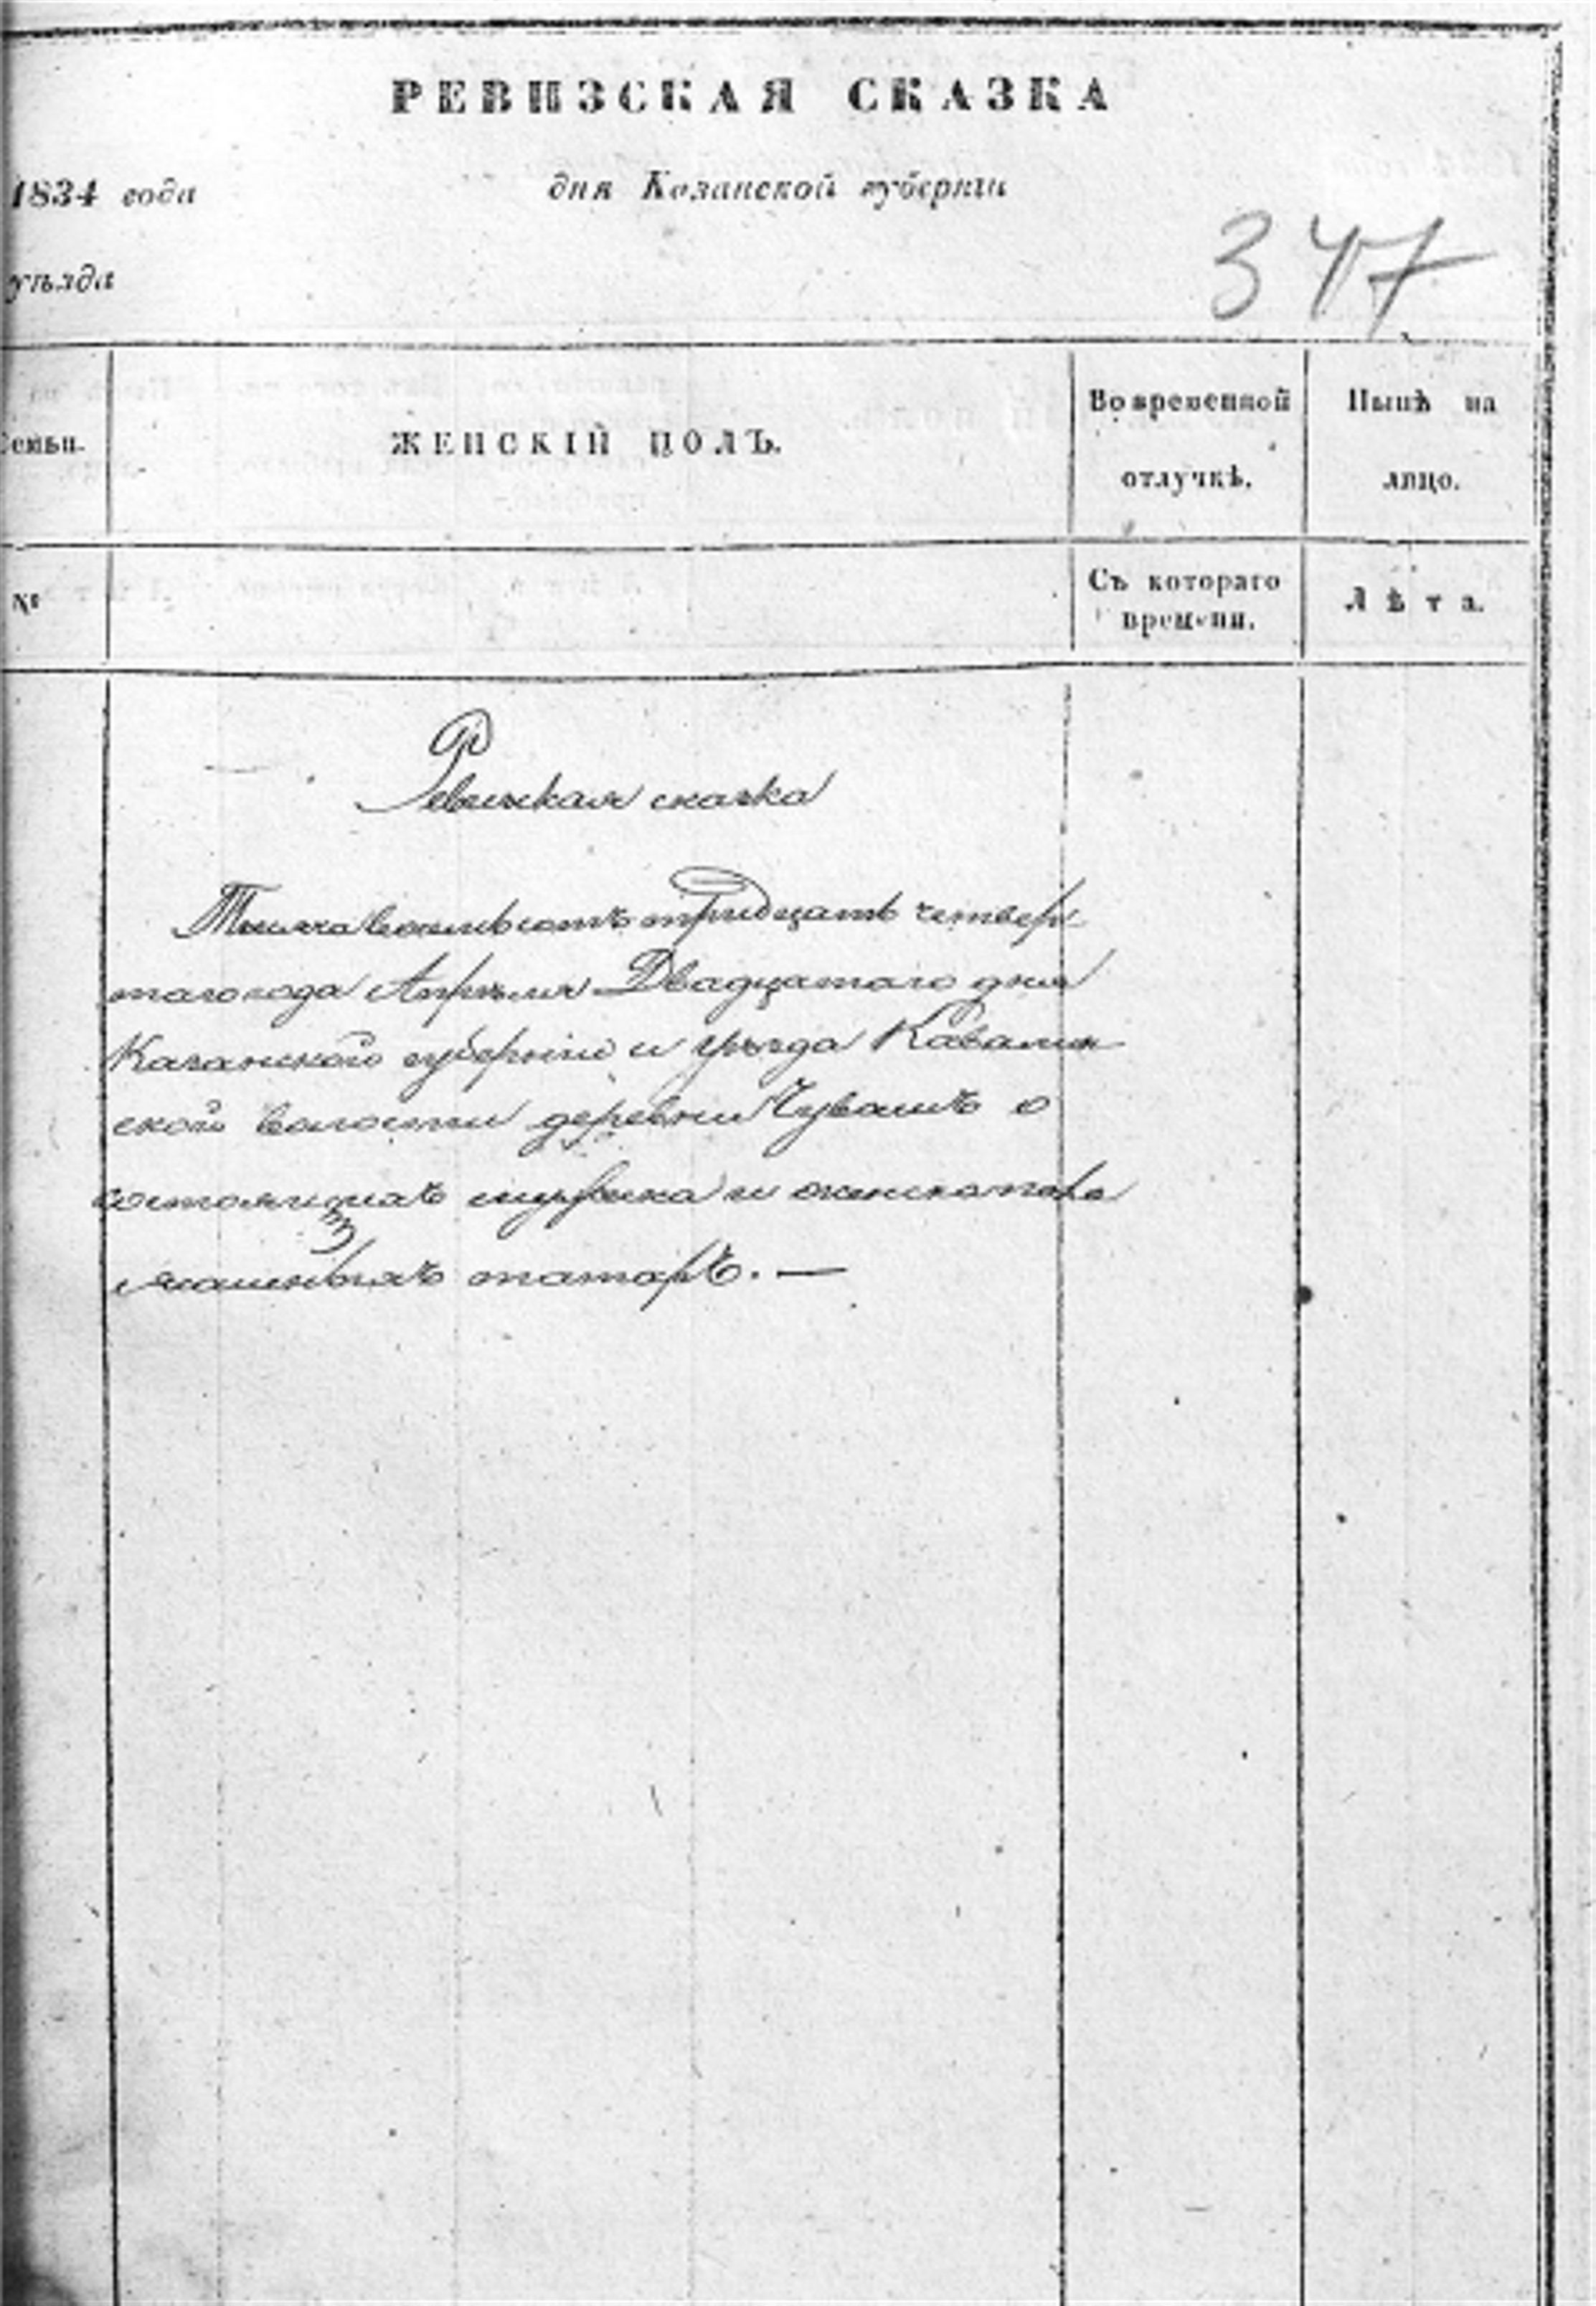 РЕВИЗСКАЯ СКАЗКА
1834 года дня Казанской губернiи
уѣзда
347
Семьи. ЖЕНСКІЙ ПОЛЪ. Во временной отлучкѣ. Нынѣ на лицо.
№ Съ котораго времени. Лѣта.
Ревизская сказка
Тысяча восемьсотъ тридцать четвер
таго года Апрѣля Двадцатаго дня
Казанской губернiи и уѣзда Кавалин
ской волости деревни Чувашъ о
состоящихъ мужеска и женска пола
татаръ. —